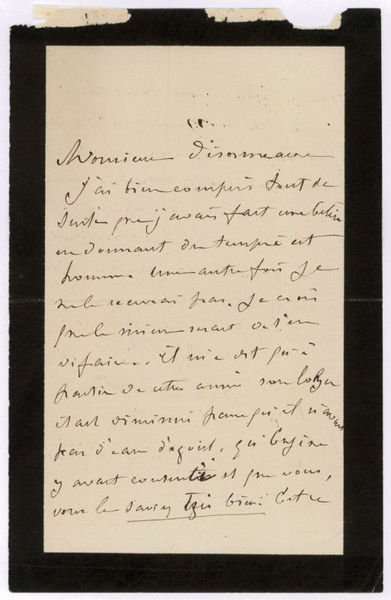 Monsieur Désormeaux
J'ai bien compris tout de
suite que j'avais fait une bêtise
en donnant du temps à cet
homme. Une autre fois je
ne le recevrai pas. Je crois
que le mieux serait de s'en
défaire. Il m'a dit qu'à
partir de cette année son loyer
était diminué parce qu'il n'avait
pas d'eau d'égout, qu'Eugène
y avait consenti et que vous,
vous le saviez très bien. Cette